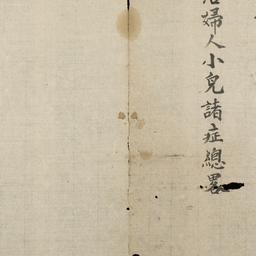 婦人小兒諸症總畧